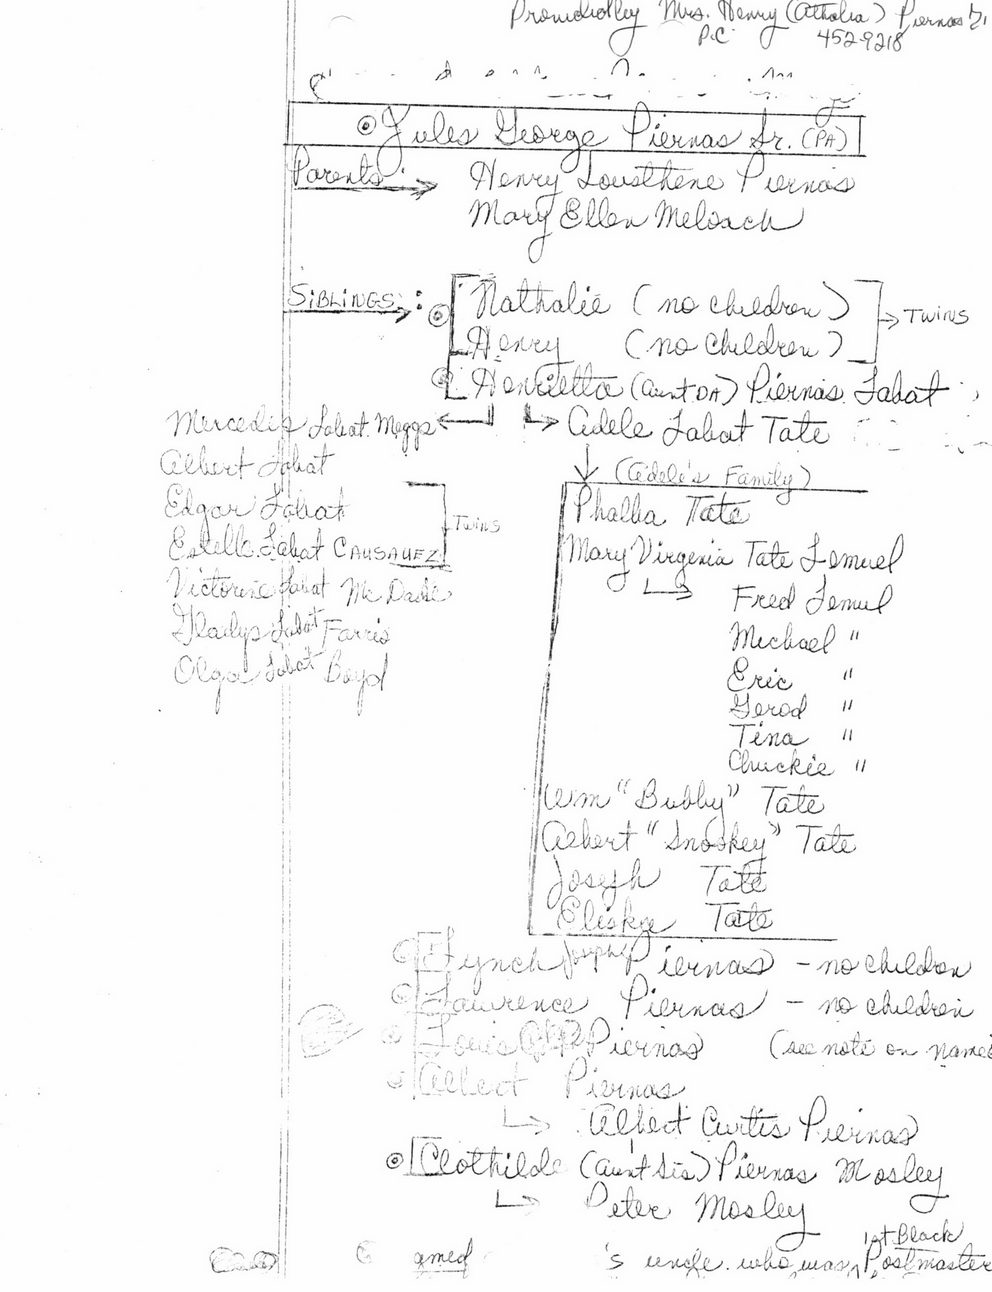 Mrs. Henry (Athalia) Piernas
P.C. 452-9218
Jules George Piernas Sr. (PA)
Parents: Henry Lousthene Piernas
Mary Ellen Meloach
SIBLINGS: Nathalie (no children)
Henry (no children)
TWINS
Henrietta (Aunt DA) Piernas Labat
Mercedes Labat Meggs
Adele Labat Tate
Albert Labat
(Adele's Family)
Edgar Labat
Phalba Tate
Estelle Labat CAUSAUEZ
Twins
Mary Virginia Tate Lemuel
Victorine Labat McDade
Fred Lemuel
Gladys Labat Farris
Michael "
Olga Labat Boyd
Eric "
Gerod "
Tina "
Chuckie "
Wm "Bubby" Tate
Albert "Snookey" Tate
Joseph Tate
Eliska Tate
Lynch Joseph Piernas - no children
Lawrence Piernas - no children
Louis Piernas (see note on name
Albert Piernas
Albert Curtis Piernas
Clothilde (Aunt Sis) Piernas Mosley
Peter Mosley
1st Black
's uncle who was Postmaster